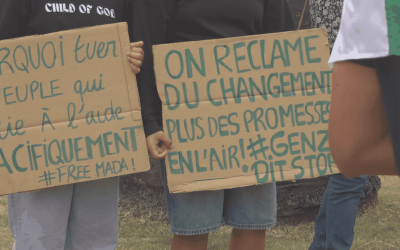 CHILD OF GOD
RQUOI tuer
EUPLE qui
ie À l'aide
ACIFIQUEMENT
#FREE MADA!
ON RECLAME
DU CHANGEMENT
PLUS DES PROMESSES
EN L'AIR! #GENZ
DIT STOP